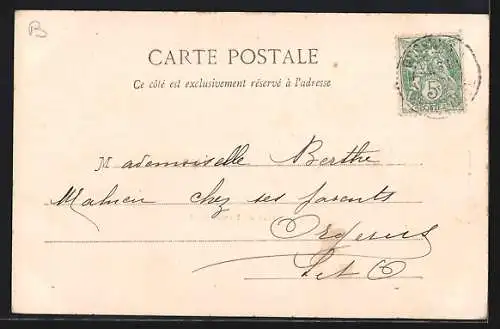 B
CARTE POSTALE
Ce côté est exclusivement réservé à l'adresse
5
Mademoiselle Berthe
chez ses parents
Orgerus
S et O